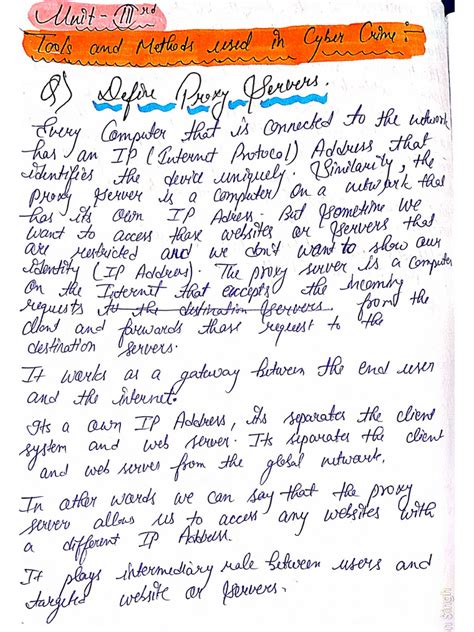 Unit - III rd
Tools and Methods used in Cyber Crime :-
Q) Define Proxy Servers.
Every Computer that is connected to the network
has an IP (Internet Protocol) Address that
identifies the device uniquely. Similarly, the
proxy server is a computer on a network that
has its own IP Adress. But sometime we
want to access those websites or servers that
are restricted and we don't want to show our
identity (IP Address). The proxy server is a computer
on the Internet that excepts the incoming
requests to the destination servers from the
client and forwards those request to the
destination servers.
It works as a gateway between the end user
and the internet.
Its a own IP Address, its separates the client
system and web server. Its separates the client
and web server from the global network.
In other words we can say that the proxy
server allows us to access any websites with
a different IP Address.
It plays intermediary role between users and
targeted website or servers.
Singh